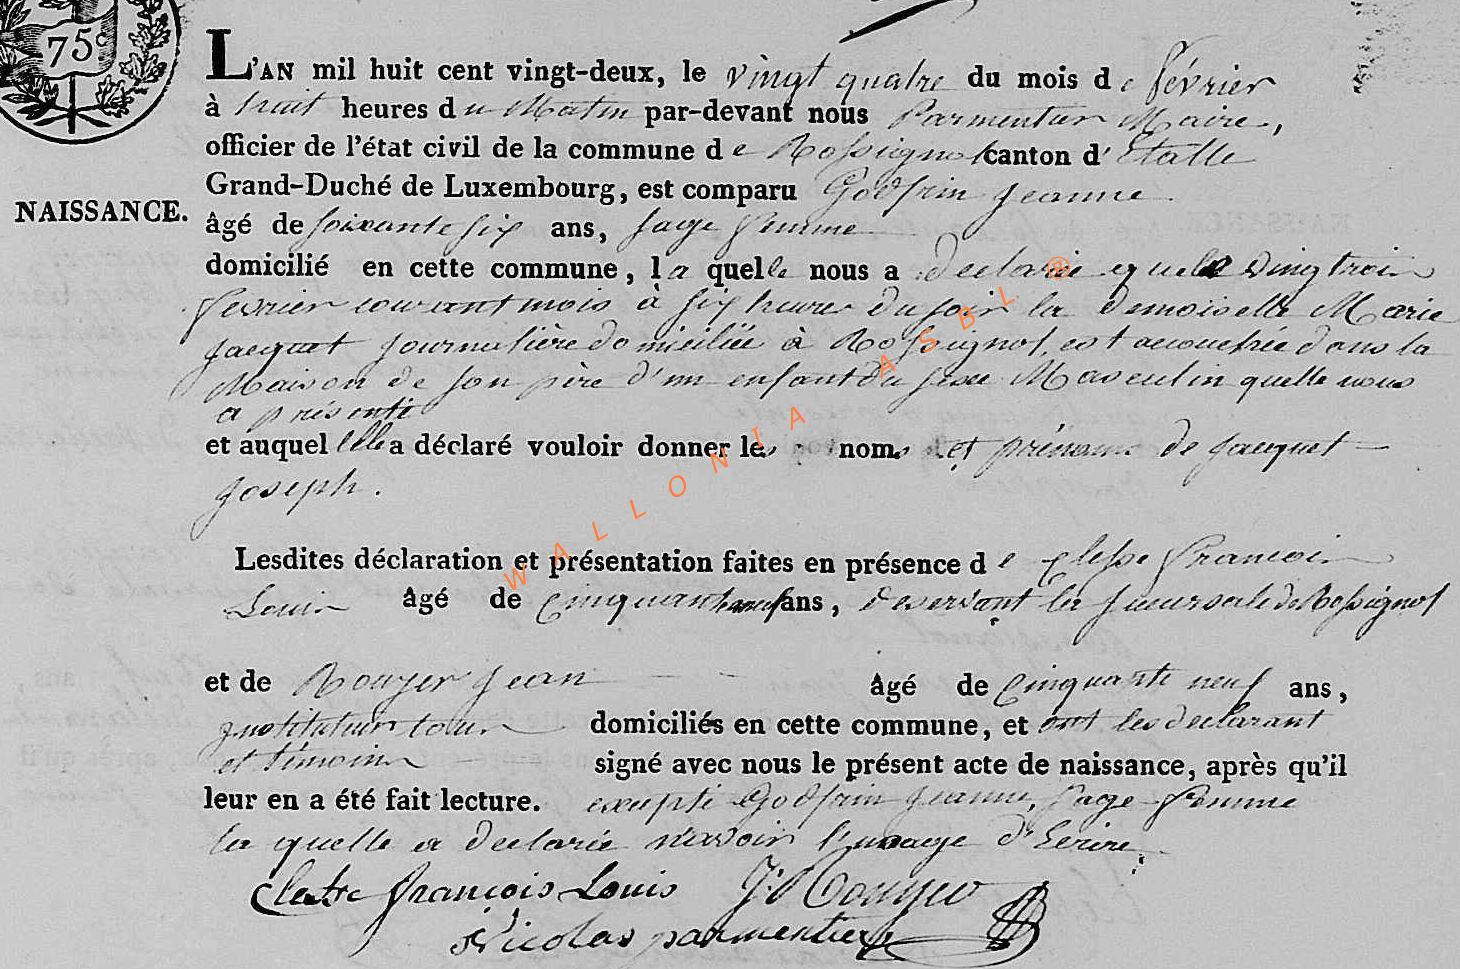 75c
L'AN mil huit cent vingt-deux, le vingt quatre du mois de février
à huit heures du Matin par-devant nous Parmentier Maire,
officier de l'état civil de la commune de Rossignol canton d'Etalle
Grand-Duché de Luxembourg, est comparu Godfrin Jeanne
NAISSANCE.
âgé de soixante six ans, sage femme
domicilié en cette commune, laquelle nous a declarée que le vingtrois
fevrier courant mois à six heures du soir la demoiselle Marie
Jacquet Journalière domiciliée à Rossignol, est accouchée dans la
Maison de son père d'un enfant du sexe Masculin quelle nous
a présenté
et auquel elle a déclaré vouloir donner les noms et prénoms de Jacquet
Joseph.
Lesdites déclaration et présentation faites en présence de François
Louis âgé de cinquante neuf ans, deservant la sucursale de Rossignol
et de Rouyer Jean âgé de cinquante neuf ans,
Instituteur tous domiciliés en cette commune, et ont les declarant
et témoins signé avec nous le présent acte de naissance, après qu'il
leur en a été fait lecture. excepté Godfrin Jeanne, sage femme
la quelle a declarée n'avoir l'usage d'Ecrire.
François Louis J. Rouyer
Nicolas parmentier
WALLONIA ASBL ®